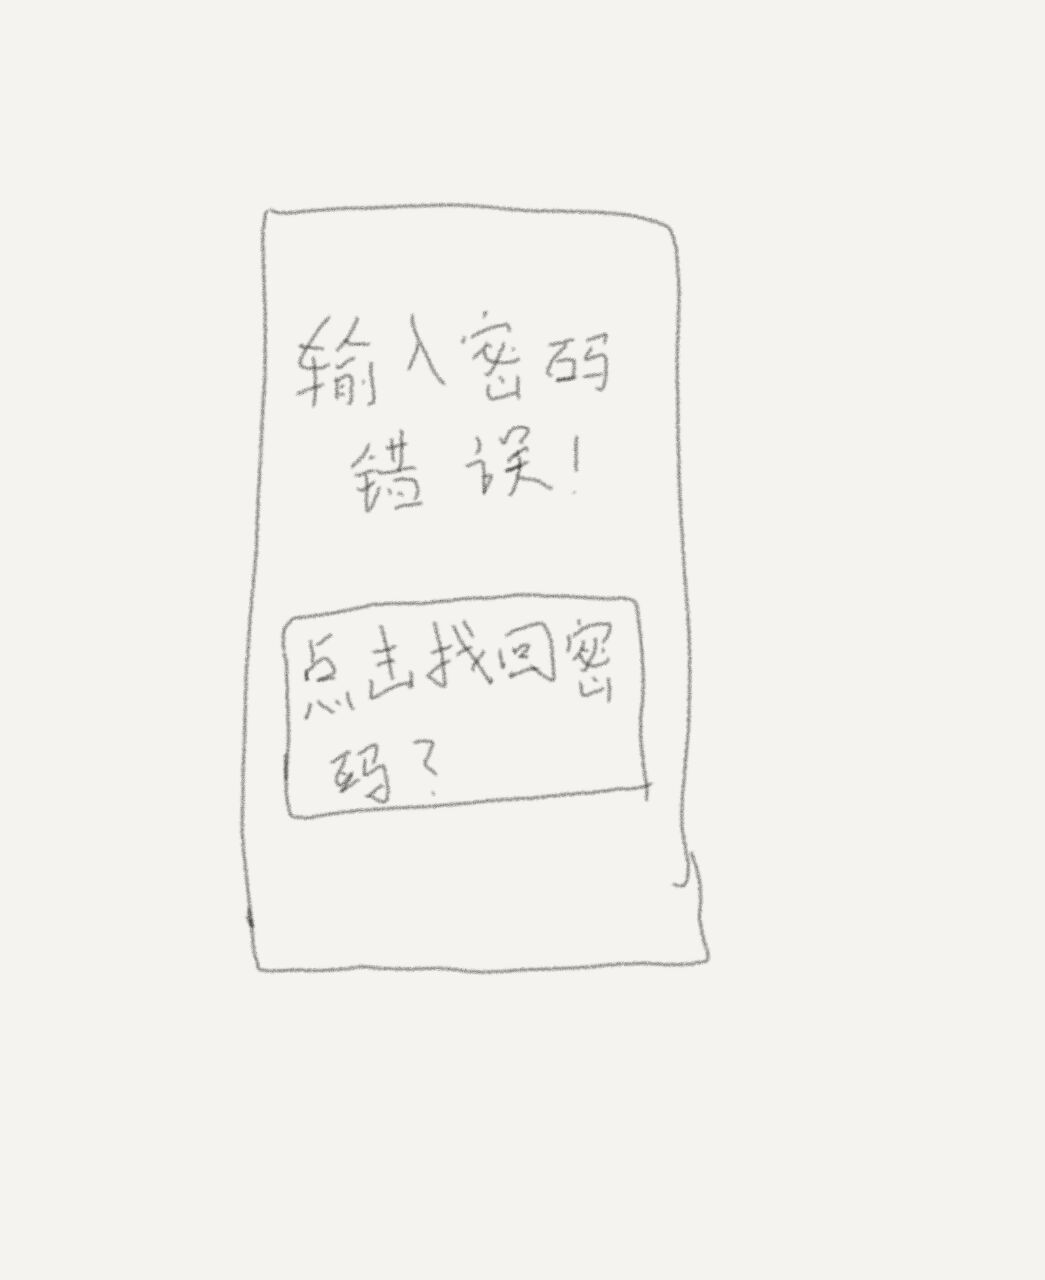 输入密码
错误!
点击找回密
码?